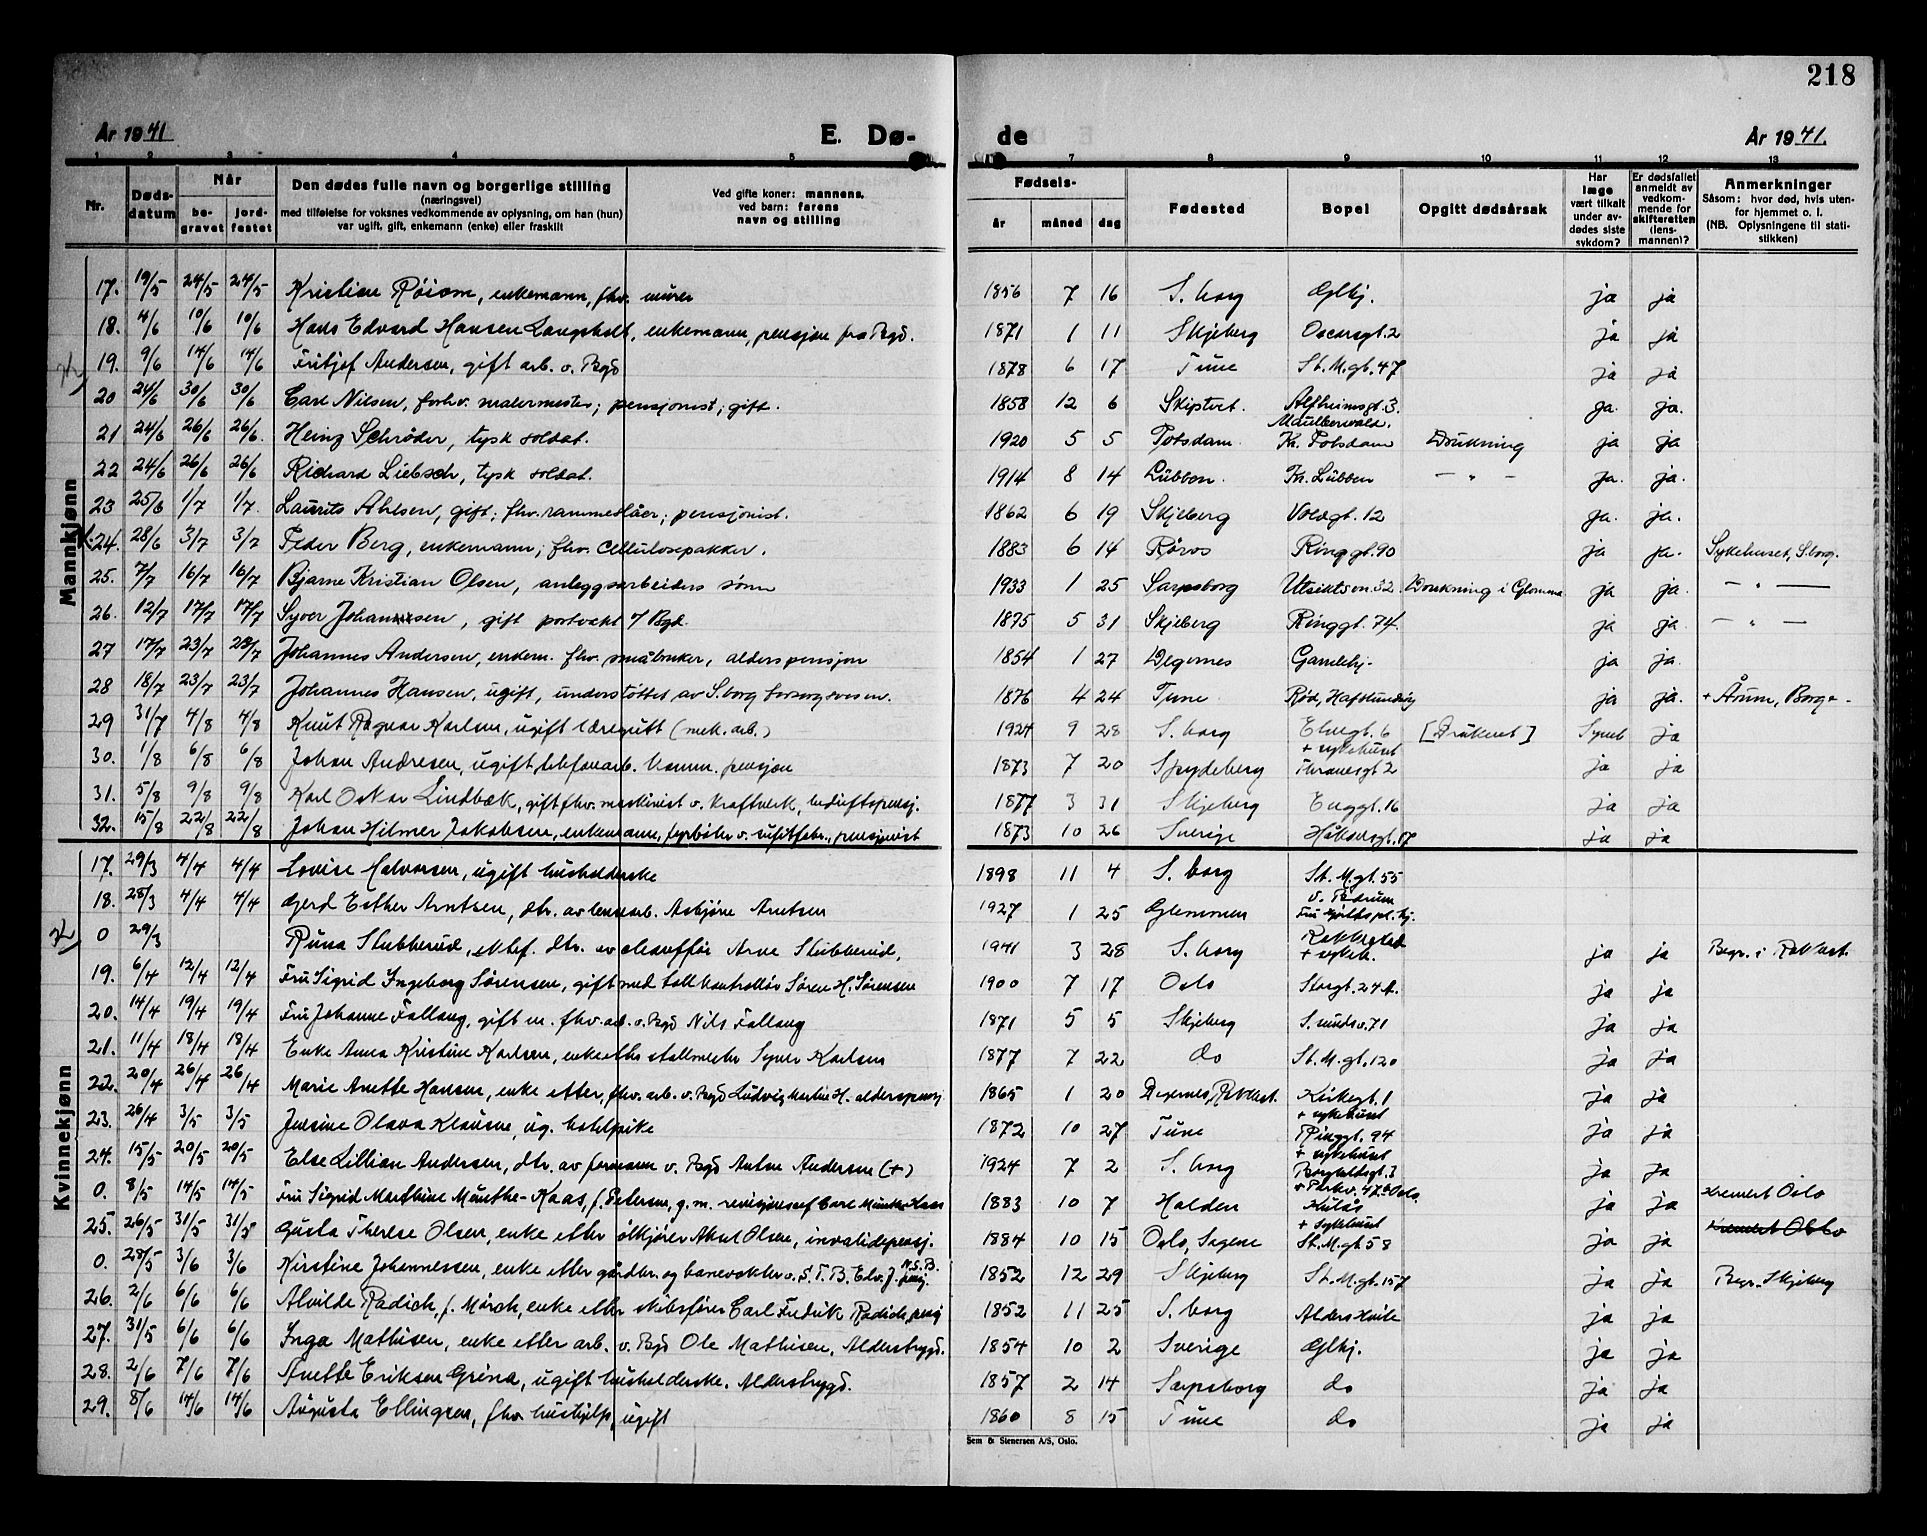 218
År 1941 E. Dø- de År 1941.
1 2 3 4 5 7 8 9 10 11 12 13
Nr. Dødsdatum Når begravet jordfestet Den dødes fulle navn og borgerlige stilling (næringsvei) med tilføielse for voksnes vedkommende av oplysning, om han (hun) var ugift, gift, enkemann (enke) eller fraskilt Ved gifte koner: mannens, ved barn: farens navn og stilling Fødsels- år måned dag Fødested Bopel Opgitt dødsårsak Har læge vært tilkalt under avdødes siste sykdom? Er dødsfallet anmeldt av vedkommende for skifteretten (lensmannen)? Anmerkninger Såsom: hvor død, hvis utenfor hjemmet o. l. (NB. Oplysningene til statistikken)
Mannkjønn
17. 19/5 24/5 24/5 Kristian Röiom, enkemann, fhv. murer 1856 7 16 S.borg Glhj. ja ja
18. 4/6 10/6 10/6 Hans Edvard Hansen Langsholt, enkemann, pensjon fra Bgd. 1871 1 11 Skjeberg Oscarsgt. 2 ja ja
19. 9/6 14/6 14/6 Fritjof Andersen, gift arb. v. Bgd 1878 6 17 Tune St.M.gt. 47 ja ja
20 24/6 30/6 30/6 Carl Nilsen, forhv. malermester; pensjonist; gift. 1858 12 6 Skiptvet. Alfheimsgt. 3. ja. ja.
21 24/6 26/6 26/6. Heinz Schröder, tysk soldat. 1920 5 5 Potsdam. Kr. Potsdam Drukning ja ja
22 24/6 26/6 26/6 Richard Liebsch, tysk soldat. 1914 8 14 Lübben. Kr. Lübben — " — ja. ja.
23 25/6 1/7 1/7. Laurits Ahlsen, gift; fhv. rammeslåer; pensjonist. 1862 6 19 Skjeberg Voldgt. 12 ja. ja.
24. 28/6 3/7 3/7 Peder Berg, enkemann; fhv. cellulosepakker. 1883 6 14 Röros Ringgt. 90 ja ja. Sykehuset, S.borg.
25. 7/7 16/7 16/7 Bjarne Kristian Olsen, anleggsarbeiders sönn 1933 1 25 Sarpsborg Utsiktsvn. 32 Drukning i Glomma ja ja. — " —
26. 12/7 17/7 17/7 Syver Johansen, gift portvakt v/ Bgd. 1895 5 31 Skjeberg Ringgt. 74. ja ja. — " —
27 17/7 23/7 23/7 Johannes Andersen, enkem. fhv. småbruker, alderspensjon 1854 1 27 Degernes Gamlehj. ja ja.
28 18/7 23/7 23/7 Johannes Hansen, ugift, understöttet av S.borg forsorgsvesen. 1876 4 24 Tune Rød, Hafslundsöy ja ja. + Årum, Borge.
29 31/7 4/8 4/8 Knut Ragnar Karlsen, ugift læregutt (mek. arb.) 1924 9 28 S.borg [Druknet] Synet ja
30. 1/8 6/8 6/8 Johan Andresen, ugift, telefonarb. komm. pensjon 1873 7 20 Spydeberg + sykehuset Thranesgt 2 ja ja
31. 5/8 9/8 9/8 Karl Oskar Lindbæk, gift fhv. maskinist v. Kraftverk, bedriftspensj. 1877 3 31 Skjeberg Enggt. 16 ja ja
32. 15/8 22/8 22/8 Johan Hilmer Jakobsen, enkemann, fyrböter v. sulfitfabr., pensjonist 1873 10 26 Sverige Håkonsgt. 17 ja ja
Kvinnekjønn
17. 29/3 4/4 4/4 Lovise Halvorsen, ugift husholderske 1898 11 4 S.borg St.M.gt. 55
18. 28/3 4/4 4/4 Gerd Esther Arntsen, dtr. av Asbjörn Arntsen 1927 1 25 Glemmen
0 29/3 Runa Stubberud, dtr. av chauffør Arne Stubberud, 1941 3 28 S.borg Rakkestad + sykeh. ja ja Begr. i Rakkest.
19. 6/4 12/4 12/4 Fru Sigrid Ingeborg Sörensen, gift med tollkontrollör Sören H. Sörensen 1900 7 17 Oslo Storgt. 24 A. ja ja
20. 14/4 19/4 19/4 Fru Johanne Fallang, gift m. fhv. arb. v. Bgd Nils Fallang 1871 5 5 Skjeberg S.sundsv. 71 ja ja
21. 11/4 18/4 18/4 Enke Anna Kristine Karlsen, enke efter stallmester Syver Karlsen 1877 7 22 do St.M.gt. 120 ja ja
22. 20/4 26/4 26/4 Marie Anette Hansen, enke etter, fhv. arb. v. Bgd Ludvig Martin H. alderspensj 1865 1 20 Degernes, Rakkest. Kirkegt. 1 ja ja
23. 26/4 3/5 3/5 Jensine Olava Klausen, ug. hotelpike 1872 10 27 Tune + sykehuset Ringgt. 94 ja ja
24. 15/5 20/5 20/5 Else Lillian Andersen, dtr. av formann v. Bgd Anton Andersen (+) 1924 7 2 S.borg + sykehuset ja ja
0. 8/5 14/5 14/5 Fru Sigrid Marthine Münthe-Kaas, f. Petersen, g.m. revisjonssjef Carl Münthe-Kaas 1883 10 7 Halden + Parkv. 47 Oslo. ja ja Kremert Oslo
25. 26/5 31/5 31/5 Gusta Therese Olsen, enke etter ölkjörer Aksel Olsen, invalidepensj. 1884 10 15 Oslo, Sagene + Sykehuset St.M.gt 58 ja ja Kremert Oslo
0. 28/5 3/6 3/6 Kirstine Johannessen, enke etter gårdbr. og banevokter v. S.T.B. Edv. J. N.S.B. pensj. 1852 12 29 Skjeberg St.M.gt. 157 ja ja Begr. Skjeberg
26. 2/6 6/6 6/6 Alvilde Radich, f. Mörch, enke etter skibsförer Carl Fredrik Radich, pensj 1852 11 25 S.borg Aldershvile ja ja
27. 31/5 6/6 6/6 Inga Mathisen, enke etter arb. v. Bgd Ole Mathisen, Alderstrygd. 1854 10 2 Sverige Glhj. ja ja
28. 2/6 7/6 7/6 Anette Eriksen Grina, ugift husholderske. Alderstrygd. 1857 2 14 Sarpsborg do ja ja
29. 8/6 14/6 14/6 Augusta Ellingsen, fhv hushjelp, ugift 1860 8 15 Tune do ja ja
Sem & Stenersen A/S, Oslo.